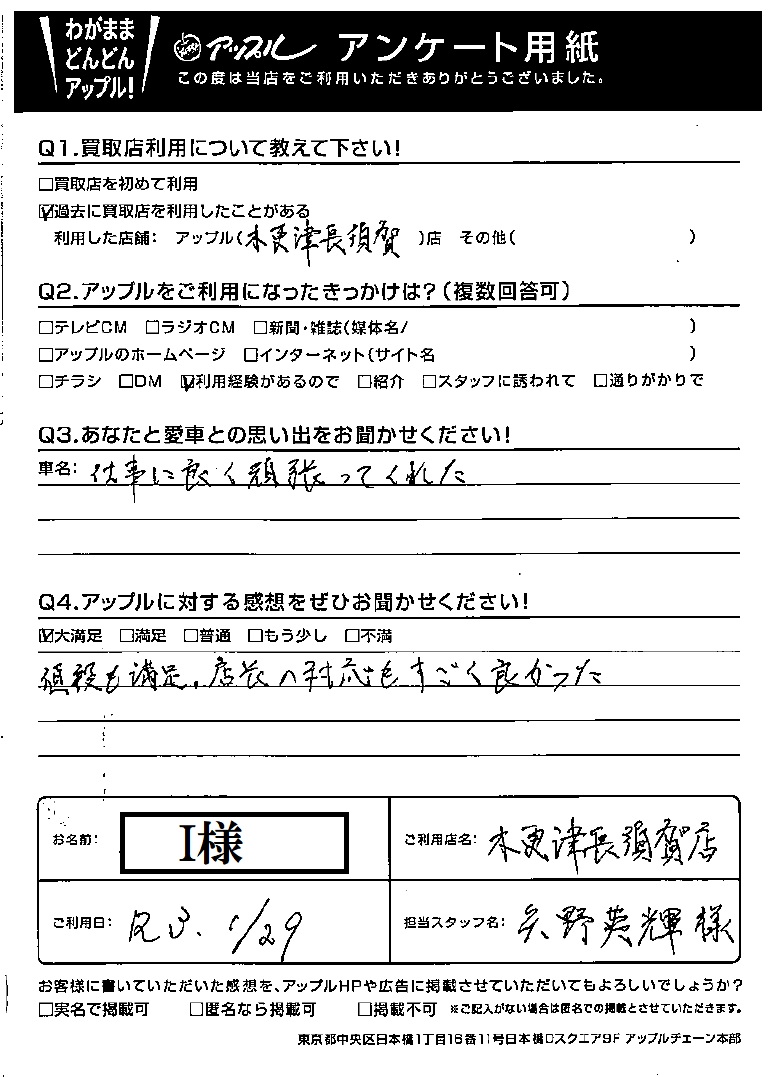 わがまま
どんどん
アップル!
アップル アンケート用紙
この度は当店をご利用いただきありがとうございました。
Q1.買取店利用について教えて下さい!
□買取店を初めて利用
☑過去に買取店を利用したことがある
利用した店舗: アップル(木更津長須賀 )店 その他( )
Q2.アップルをご利用になったきっかけは?(複数回答可)
□テレビCM □ラジオCM □新聞・雑誌(媒体名/ )
□アップルのホームページ □インターネット(サイト名 )
□チラシ □DM ☑利用経験があるので □紹介 □スタッフに誘われて □通りがかりで
Q3.あなたと愛車との思い出をお聞かせください!
車名: 仕事に良く頑張ってくれた
Q4.アップルに対する感想をぜひお聞かせください!
☑大満足 □満足 □普通 □もう少し □不満
値段も満足。店長の対応もすごく良かった
お名前: I様
ご利用店名: 木更津長須賀店
ご利用日: R3. 1/29
担当スタッフ名: 矢野英輝様
お客様に書いていただいた感想を、アップルHPや広告に掲載させていただいてもよろしいでしょうか?
□実名で掲載可 □匿名なら掲載可 □掲載不可 ※ご記入がない場合は匿名での掲載とさせていただきます。
東京都中央区日本橋1丁目16番11号日本橋Dスクエア9F アップルチェーン本部